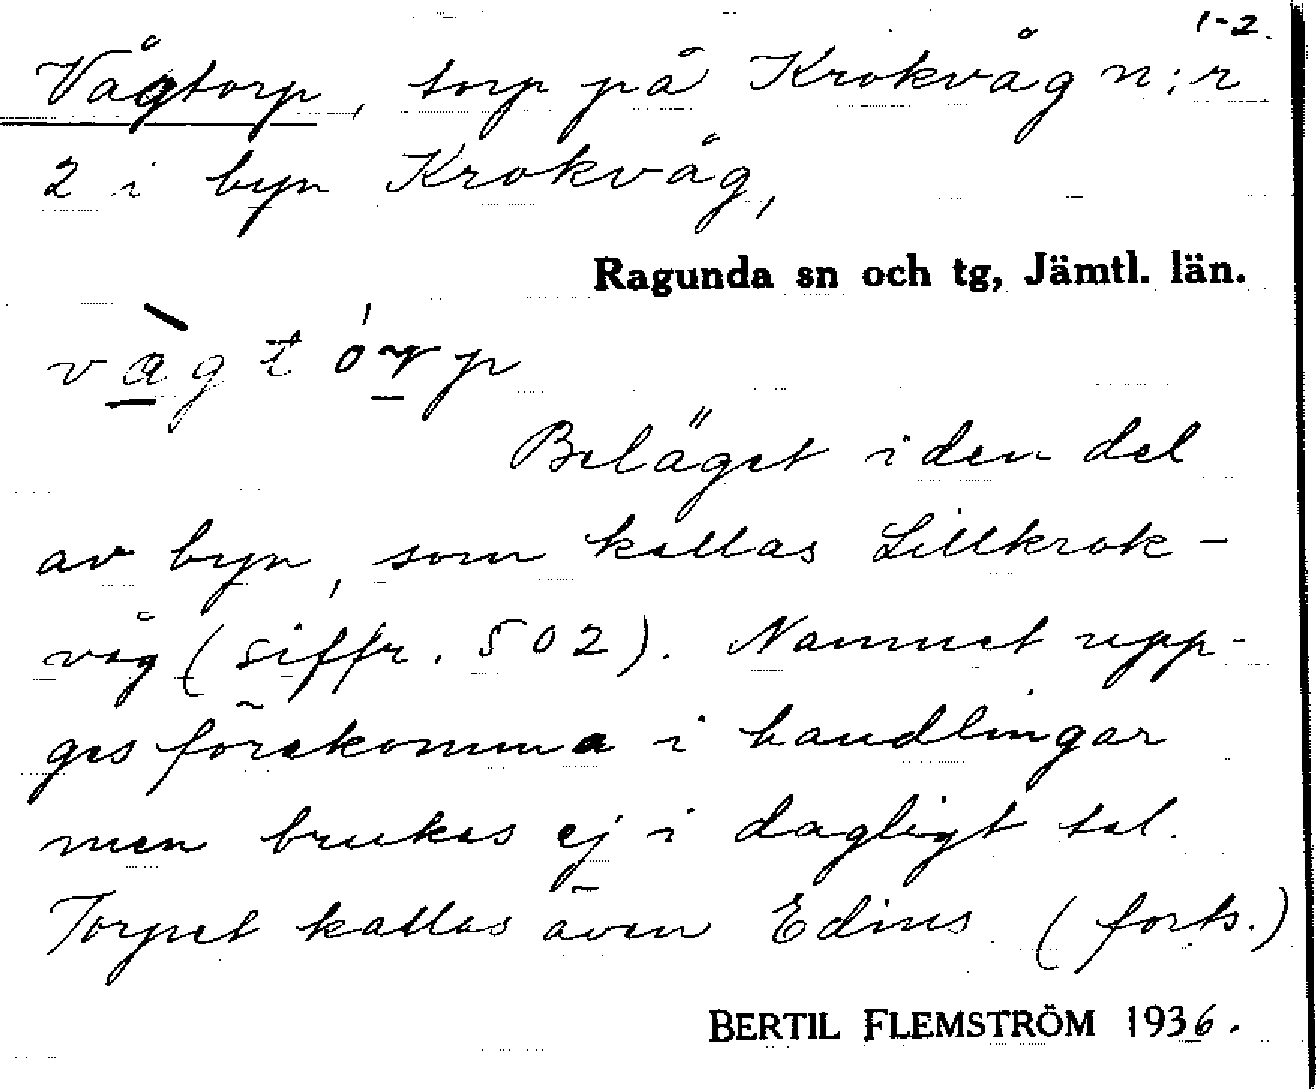 1-2.
Vågtorp, torp på Krokvåg n:r
2 i byn Krokvåg,
Ragunda sn och tg, Jämtl. län.
vàgtórp
Beläget i den del
av byn, som kallas Lillkrok-
våg (siffr. 502). Namnet upp-
ges förekomma i handlingar
men brukas ej i dagligt tal.
Torpet kallas även Edins (forts.)
BERTIL FLEMSTRÖM 1936.